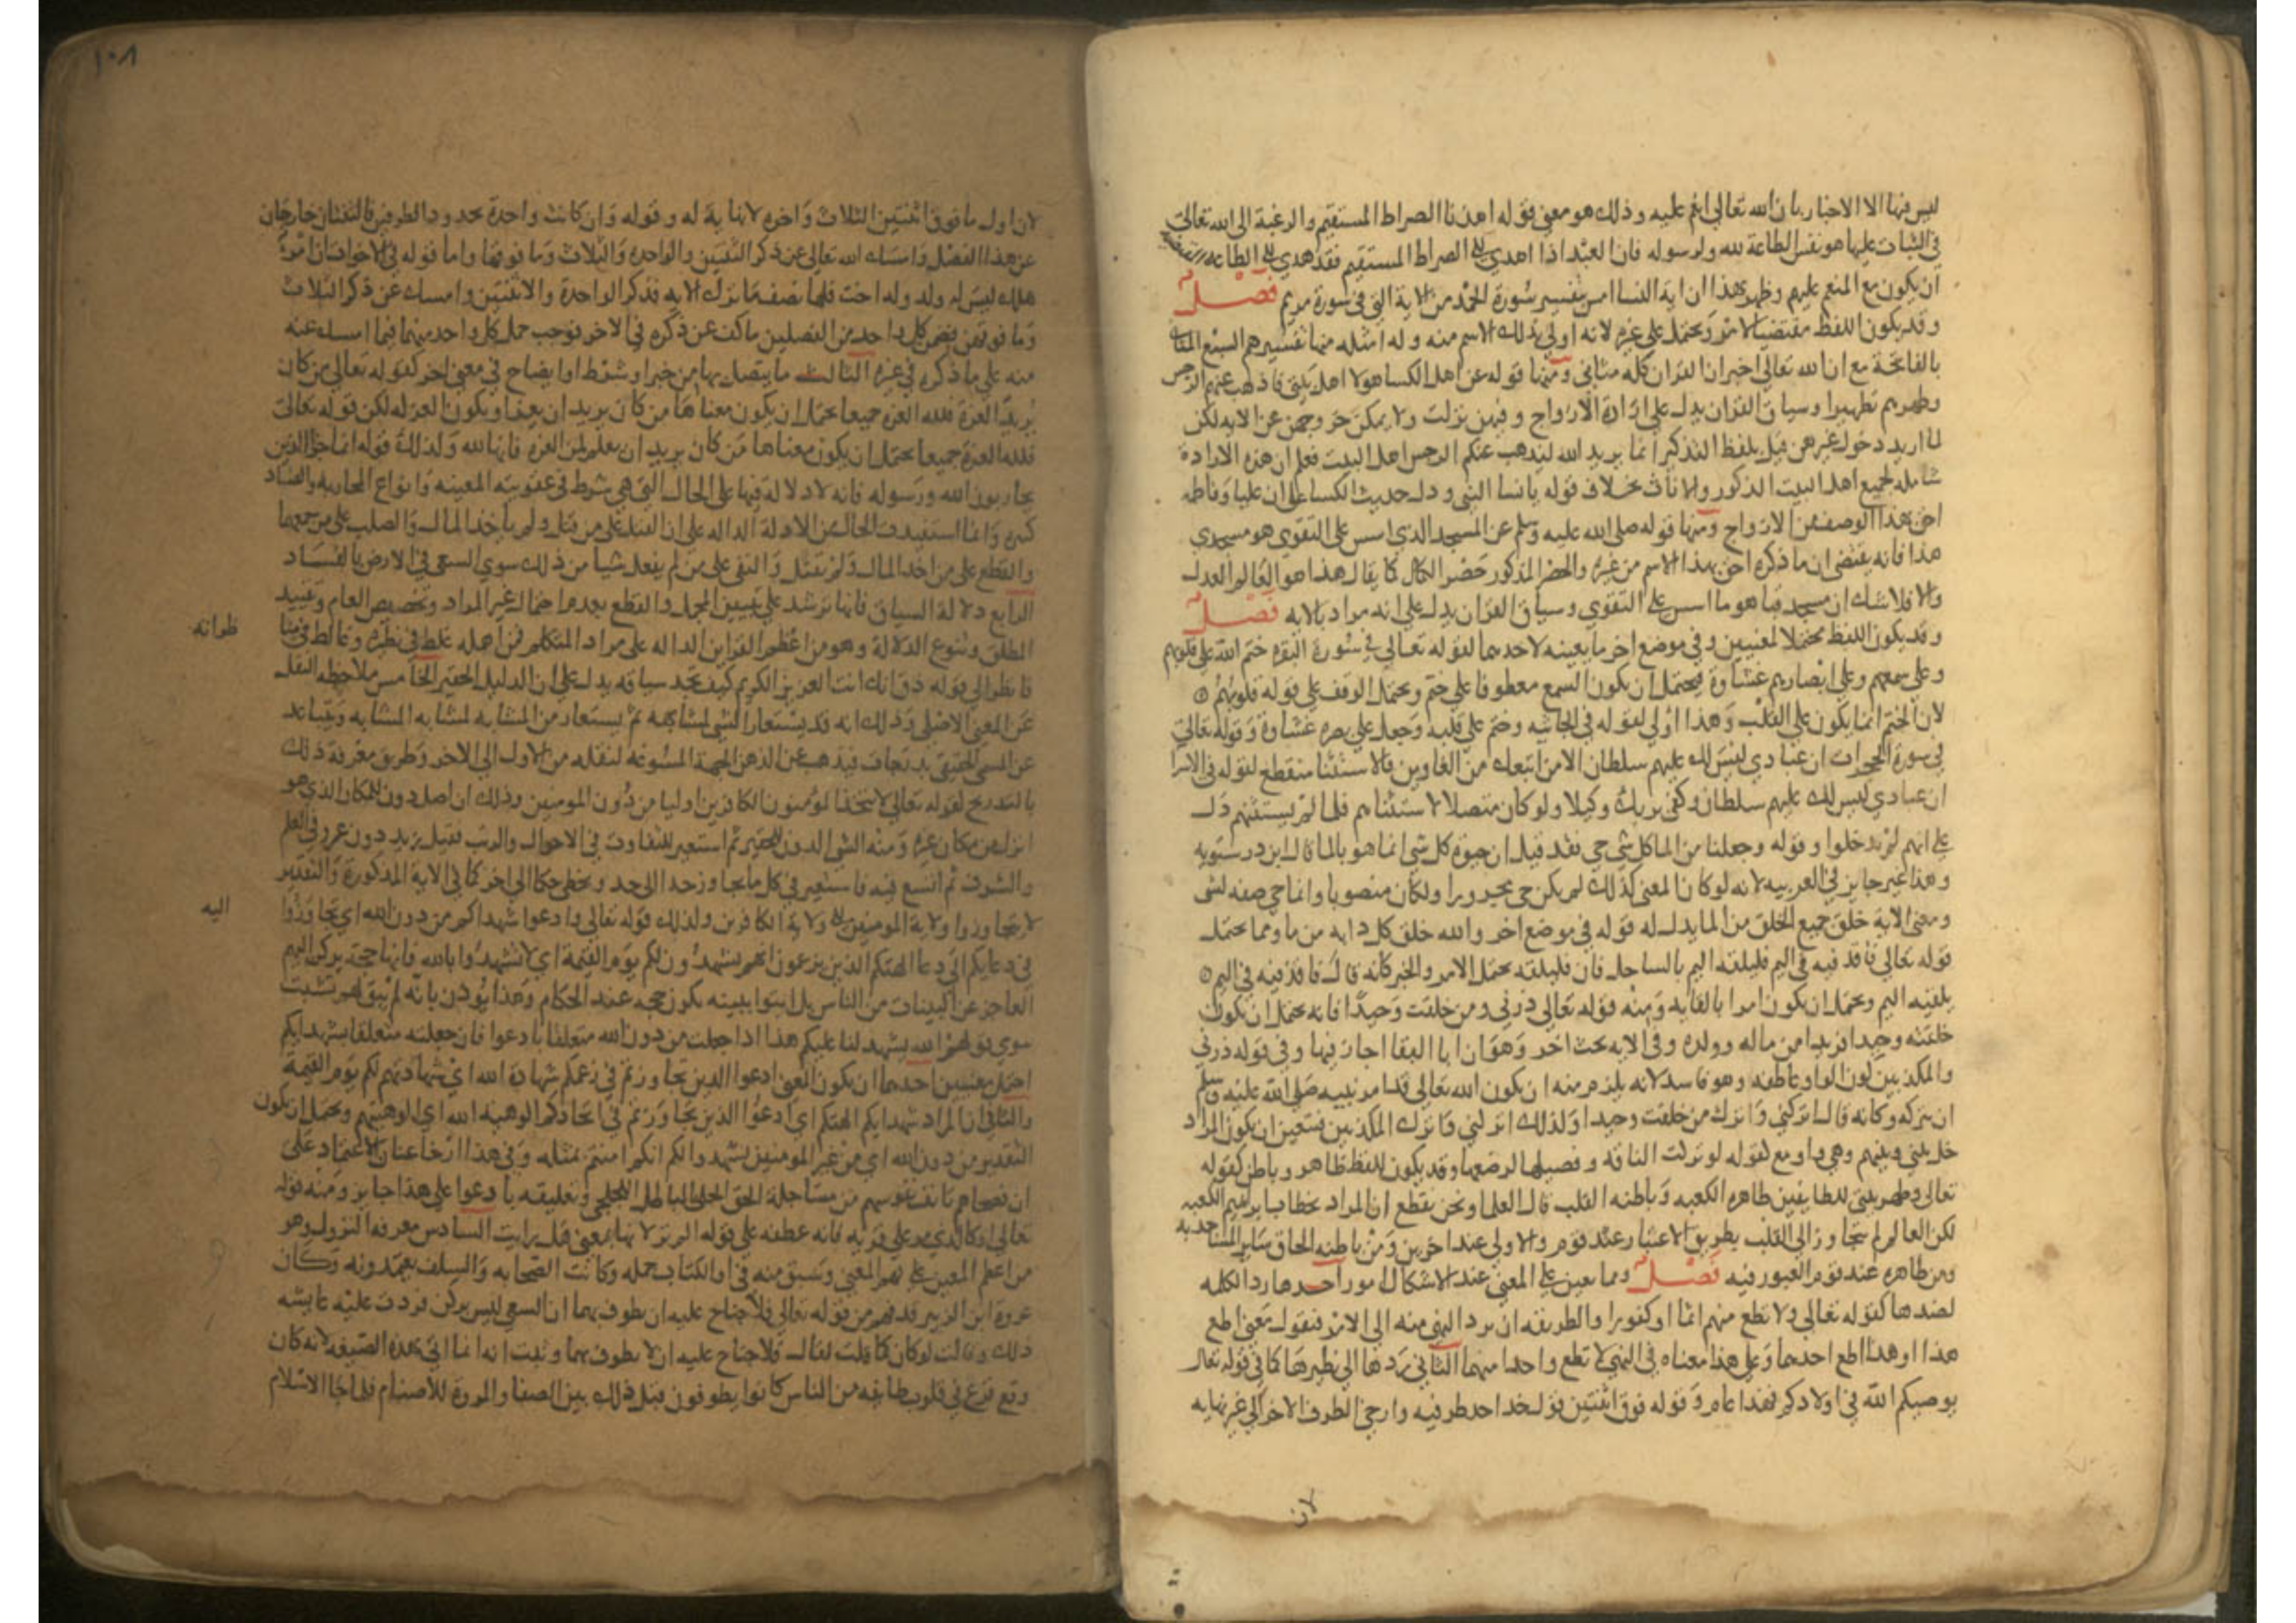 ليس فيها الا الاخبار بان الله تعالى انعم عليه وذلك هو معنى قوله اهدنا الصراط المستقيم والرغبة الى الله تعالى
في الثبات عليها هو نفس الطاعة لله ولرسوله فان العبد اذا اهدي الى الصراط المستقيم فقد هدي الى الطاعة
ان يكون مع المنعم عليهم وظهر بهذا ان اية النسا امس بتفسير سورة الحمد من الاية التي في سورة مريم فصل
وقد يكون اللفظ مقتضيا لامر ويحمل على غيره لانه اولى بذلك الاسم منه وله امثله منها تفسيرهم السبع المثاني
بالفاتحة مع ان الله تعالى اخبر ان القران كله مثاني ومنها قوله عن اهل الكسا هولا اهل بيتي فاذهب عنهم الرجس
وطهرهم تطهيرا وسياق القران يدل على ارادة الازواج وفيهن نزلت ولا يمكن خروجهن عن الاية لكن
لما اريد دخول غيرهن قيل بلفظ التذكير انما يريد الله ليذهب عنكم الرجس اهل البيت فعلم ان هذه الارادة
شاملة لجميع اهل البيت الذكور والاناث بخلاف قوله يا نسا النبي ودل حديث الكسا على ان عليا وفاطمه
احق بهذا الوصف من الازواج ومنها قوله صلى الله عليه وسلم عن المسجد الذي اسس على التقوى هو مسجدي
هذا فانه يقتضي ان ما ذكره احق بهذا الاسم من غيره والحصر المذكور حصر الكمال كما يقال هذا هو العالم العدل
والا فلا شك ان مسجد قبا هو ما اسس على التقوى وسياق القران يدل على انه مراد بالايه فصل
وقد يكون اللفظ محتملا لمعنيين وفي موضع اخر ما يعينه لاحدهما لقوله تعالى في سورة البقرة ختم الله على قلوبهم
وعلى سمعهم وعلى ابصارهم غشاوة فيحتمل ان يكون السمع معطوفا على ختم ويحتمل الوقف على قوله قلوبهم
لان الختم انما يكون على القلب وهذا اولى لقوله في الجاثيه وختم على قلبه وجعل على بصره غشاوة وقوله تعالى
في سورة الحجرات ان عبادي ليس لك عليهم سلطان الا من اتبعك من الغاوين فالاستثنا منقطع لقوله في الاسرا
ان عبادي ليس لك عليهم سلطان وكفى بربك وكيلا ولو كان متصلا لاستثناهم فلما لم يستثنهم دل
على انهم لم يدخلوا وقوله وجعلنا من الما كل شي حي فقد قيل ان حيوة كل شي انما هو بالما قال ابن درستويه
وهذا غير جايز في العربيه لانه لو كان المعنى كذلك لم يكن حي مجرورا ولكان منصوبا وانما حي صفه لشي
ومعنى الاية خلق جميع الخلق من الما يدل له قوله في موضع اخر والله خلق كل دابه من ما ومما يحتمل
قوله تعالى فاقذفيه في اليم فليلقه اليم بالساحل فان فليلقه يحتمل الامر والخبر كانه قال فاقذفيه في اليم
يلقيه اليم ويحتمل ان يكون امرا بالقايه ومنه قوله تعالى ذرني ومن خلقت وحيدا فانه يحتمل ان يكون
خلقته وحيدا فريدا من ماله وولده وفي الايه بحث اخر وهو ان ابا البقا اجاز فيها وفي قوله ذرني
والمكذبين كون الواو عاطفه وهو فاسد لانه يلزم منه ان يكون الله تعالى قد امر نبيه صلى الله عليه وسلم
ان يتركه وكانه قال اتركني واترك من خلقت وحيدا ولذلك اتركني واترك المكذبين فتعين ان يكون المراد
خل بيني وبينهم وهي واو مع لقوله لو تركت الناقه وفصيلها لرضعها وقد يكون للفظ ظاهر وباطن كقوله
تعالى وطهر بيتي للطايفين ظاهره الكعبه وباطنه القلب قال العلما ونحن نقطع ان المراد بخطاب ابرهيم الكعبه
لكن العالم لم يتجاوز الى القلب بطريق الاعتبار عند قوم والاولى عند اخرين ومن باطنه الحاق ساير المساجد به
ومن ظاهره عند قوم العبور فيه فصل ومما يعين على المعنى عند الاشكال امور احدها رد الكلمه
لضدها كقوله تعالى ولا تطع منهم اثما او كفورا والطريقه ان يرد النهي منه الى الامر فنقول معنى اطع
هذا او هذا اطع احدهما وعلى هذا معناه في النهي لا تطع واحدا منهما الثاني ردها الى نظيرها كما في قوله تعالى
يوصيكم الله في اولادكم فهذا عام وقوله فوق اثنتين قول حد احد طرفيه وارجي الطرف الاخر الى غير نهايه
لان
١٠٨
لان اول ما فوق اثنتين الثلاث واخره لا نهاية له وقوله وان كانت واحدة محدودا الطرفين فالثنتان خارجتان
عن هذا الفصل وامساك الله تعالى عن ذكر الثنتين والواحدة والثلاث وما فوقها واما قوله في الاخوات ان امرؤ
هلك ليس له ولد وله اخت فلها نصف ما ترك الايه فذكر الواحدة والاثنتين وامسك عن ذكر الثلاث
وما فوقهن فضمن كل واحد من الفصلين ما كف عن ذكره في الاخر فوجب حمل كل واحد منهما فيما امسك عنه
منه على ما ذكره في غيره الثالث ما يتصل بها من خبر او شرط او ايضاح في معنى اخر كقوله تعالى من كان
يريد العزة فلله العزة جميعا يحتمل ان يكون معناها من كان يريد ان يعز او يكون العزة له لكن قوله تعالى
فلله العزة جميعا يحتمل ان يكون معناها من كان يريد ان يعلم لمن العزة فانها لله ولذلك قوله انما جزا الذين
يحاربون الله ورسوله فانه لا دلالة فيها على الحال التي هي شرط في عقوبته المعينه وانواع المحاربه والفساد
كثيره وانما استفيدت الحال من الادلة الداله على ان القتل على من قتل ولم ياخذ المال والصلب على من جمعهما
والقطع على من اخذ المال ولم يقتل والنفي على من لم يفعل شيا من ذلك سوى السعي في الارض بالفساد
الرابع دلالة السياق فانها ترشد الى تبيين المجمل والقطع بعدم احتمال غير المراد وتخصيص العام وتقييد
المطلق وتنوع الدلالة وهو من اعظم القراين الداله على مراد المتكلم فمن اهمله غلط في نظيره وغالط في مناظراته
فانظر الى قوله ذق انك انت العزيز الكريم كيف تجد سياقه يدل على ان الدليل الحقير الخامس ملاحظه النقل
عن المعنى الاصلي وذلك انه قد يستعار الشي لمشابهه ثم يستعار من المشابه لمشابه المشابه ويتباعد
عن المسمى الحقيقي بدرجات فيذهب عن الذهن الجهة المسوغه لنقله من الاول الى الاخر وطريق معرفة ذلك
بالتدريج لقوله تعالى لا يتخذ المؤمنون الكافرين اوليا من دون المومنين وذلك ان اصل دون للمكان الذي هو
انزل من مكان غيره ومنه الشي الدون للحقير ثم استعير للتفاوت في الاحوال والرتب فقيل زيد دون عمرو في العلم
والشرف ثم اتسع فيه فاستعير في كل ما يتجاوز حدا الى حد وتخطى حكما الى اخر كما في الاية المذكورة والتقدير
لا تتجاوزوا ولاية المومنين الى ولاية الكافرين ولذلك قوله تعالى وادعوا شهداكم من دون الله اي تجاوزوا
في دعايكم الى دعا الهتكم الذين تزعمون انهم يشهدون لكم يوم القيمة اي لا تشهدوا بالله فانها حجة يركن اليه
العاجز عن البينات من الناس بل ائتوا ببينه تكون حجه عند الحكام وهذا يوذن بانه لم يبق لهم تشبث
سوى قولهم الله يشهد لنا عليكم هذا اذا جعلت من دون الله متعلقا بادعوا فان جعلته متعلقا بشهدايكم
احتمل معنيين احدهما ان يكون المعنى ادعوا الذين تجاوزتم في زعمكم شهادة الله اي شهادتهم لكم يوم القيمة
والثاني ان المراد بشهدايكم الهتكم اي ادعوا الذين تجاوزتم في اتخاذكم الوهيه الله اي الوهيتهم ويحتمل ان يكون
التقدير من دون الله اي من غير المومنين يشهدوا لكم انكم امنتم بمثله وفي هذا ارخا عنان الاعتماد على
ان فصحاهم تانف نفوسهم من مساجلة الحق الجلي بالباطل اللجلجي وتعليقه بادعوا على هذا جايز ومنه قوله
تعالى او كالذي مر على قريه فانه عطفه على قوله الم تر لانها بمعنى هل رايت السادس معرفه النزول وهو
من اعظم المعين على فهم المعنى وسبق منه في اول الكتاب جمله وكانت الصحابه والسلف يعتمدونه وكان
عروة ابن الزبير قد فهم من قوله تعالى فلا جناح عليه ان يطوف بهما ان السعي ليس بركن فردت عليه عايشه
ذلك وقالت لو كان كما قلت لقال فلا جناح عليه ان لا يطوف بهما وثبت انه انما اتى بهذه الصيغه لانه كان
وقع فزع في قلوب طايفه من الناس كانوا يطوفون قبل ذلك بين الصفا والمروة للاصنام فلما جا الاسلام
اليه